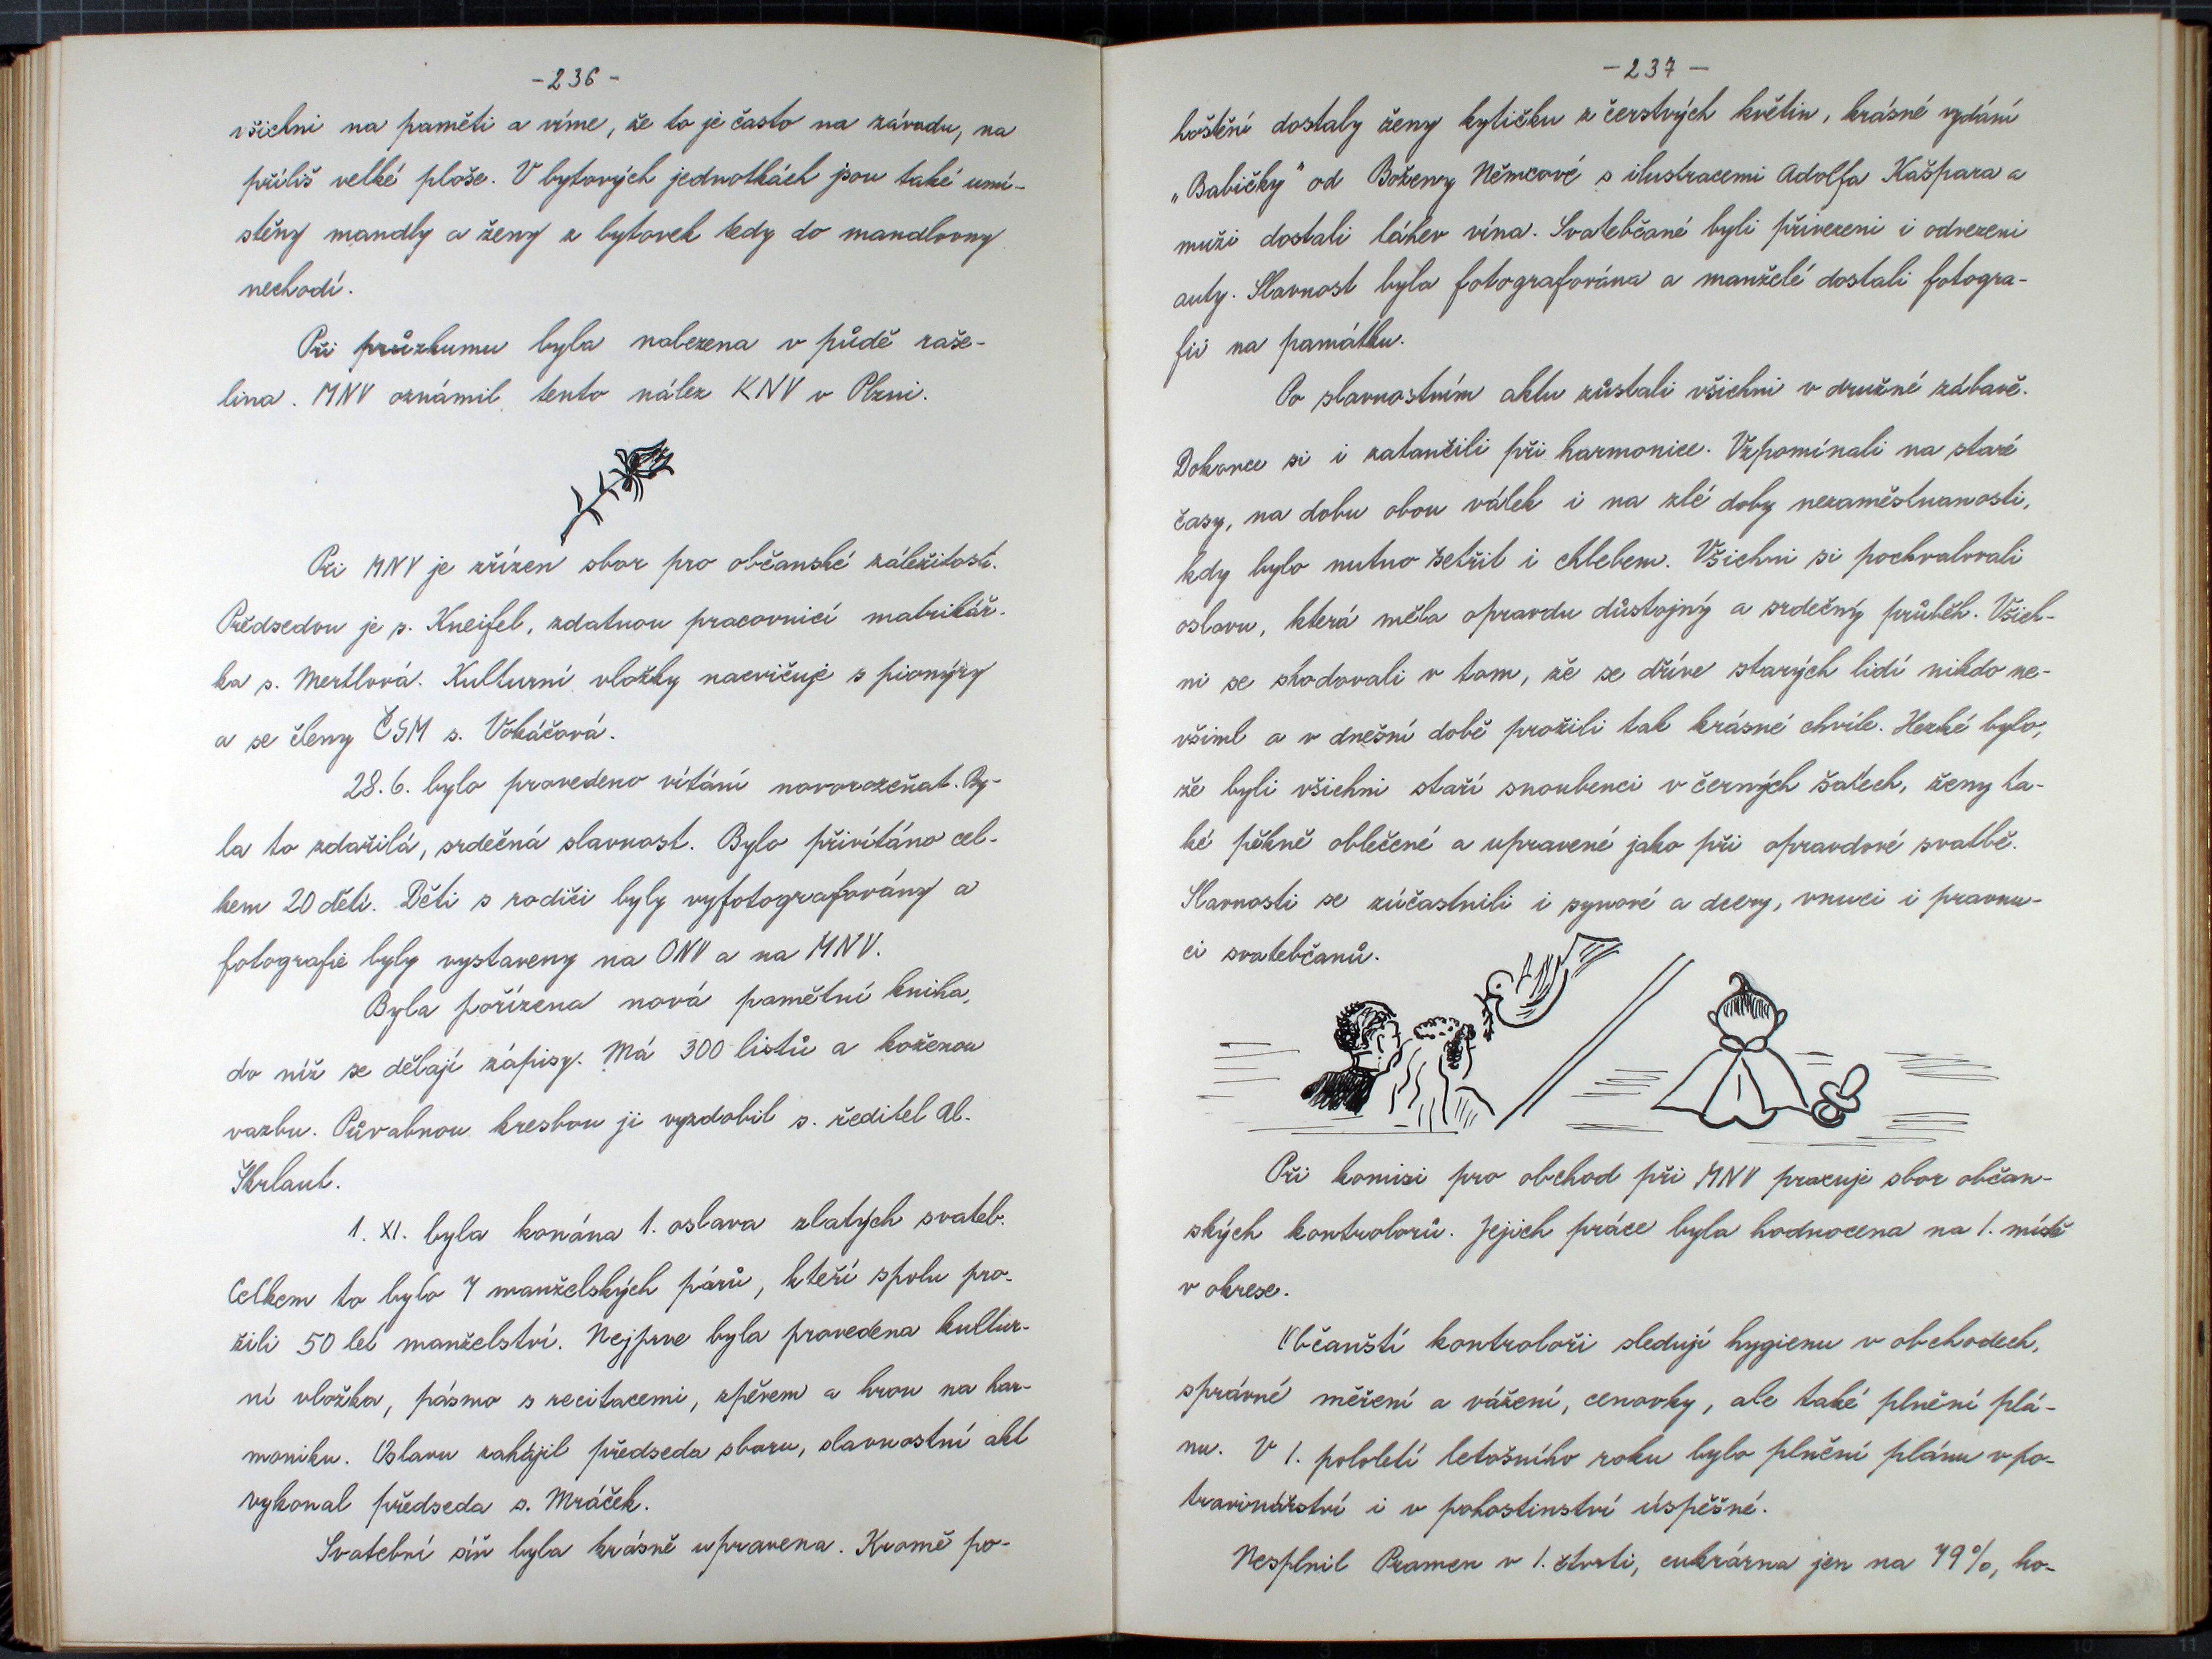 -236-
všichni na paměti a víme, že to je často na závadu, na
příliš velké ploše. V bytových jednotkách jsou také umí-
stěny mandly a ženy z bytovek tedy do mandlovny
nechodí.
Při průzkumu byla nalezena v půdě raše-
lina. MNV oznámil tento nález KNV v Plzni.
Při MNV je zřízen sbor pro občanské záležitosti.
Předsedou je s. Kneifel, zdatnou pracovnicí matrikář-
ka s. Mertlová. Kulturní vložky nacvičuje s pionýry
a se členy ČSM s. Vokáčová.
28. 6. bylo provedeno vítání novorozeňat. By-
la to zdařilá, srdečná slavnost. Bylo přivítáno cel-
kem 20 dětí. Děti s rodiči byly vyfotografovány a
fotografie byly vystaveny na ONV a na MNV.
Byla pořízena nová pamětní kniha,
do níž se dělají zápisy. Má 300 listů a koženou
vazbu. Půvabnou kresbou ji vyzdobil s. ředitel Al.
Škrlant.
1. XI. byla konána 1. oslava zlatých svateb.
Celkem to bylo 7 manželských párů, kteří spolu pro-
žili 50 let manželství. Nejprve byla provedena kultur-
ní vložka, pásmo s recitacemi, zpěvem a hrou na har-
moniku. Oslavu zahájil předseda sboru, slavnostní akt
vykonal předseda s. Mráček.
Svatební síň byla krásně upravena. Kromě po-
-237-
hoštění dostaly ženy kytičku z čerstvých květin, krásné vydání
„Babičky" od Boženy Němcové s ilustracemi Adolfa Kašpara a
muži dostali láhev vína. Svatebčané byli přivezeni i odvezeni
auty. Slavnost byla fotografována a manželé dostali fotogra-
fii na památku.
Po slavnostním aktu zůstali všichni v družné zábavě.
Dokonce si i zatančili při harmonice. Vzpomínali na staré
časy, na dobu obou válek i na zlé doby nezaměstnanosti,
kdy bylo nutno šetřit i chlebem. Všichni si pochvalovali
oslavu, která měla opravdu důstojný a srdečný průběh. Všich-
ni se shodovali v tom, že se dříve starých lidí nikdo ne-
všiml a v dnešní době prožili tak krásné chvíle. Hezké bylo,
že byli všichni staří snoubenci v černých šatech, ženy ta-
ké pěkně oblečené a upravené jako při opravdové svatbě.
Slavnosti se zúčastnili i synové a dcery, vnuci i pravnu-
ci svatebčanů.
Při komisi pro obchod při MNV pracuje sbor občan-
ských kontrolorů. Jejich práce byla hodnocena na 1. místě
v okrese.
Občanští kontroloři sledují hygienu v obchodech,
správné měření a vážení, cenovky, ale také plnění plá-
nu. V 1. pololetí letošního roku bylo plnění plánu v po-
travinářství i v pohostinství úspěšné.
Nesplnil Pramen v 1. čtvrti, cukrárna jen na 79%, ho-